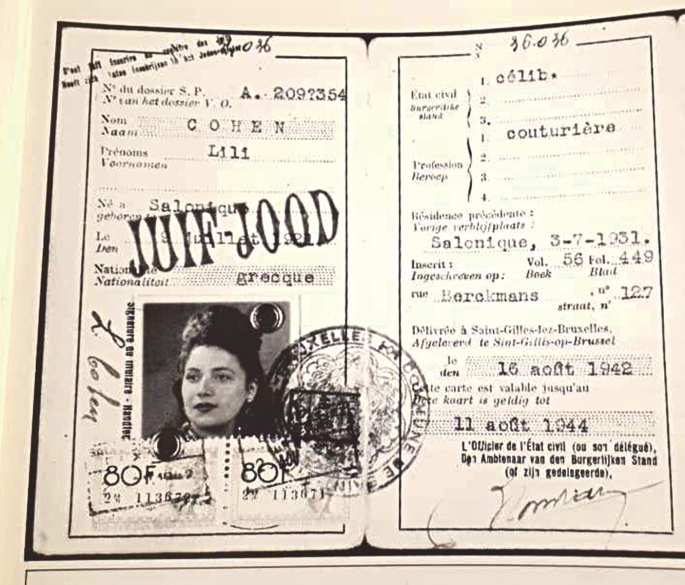 N'est pas inscrite au registre des
36.036
Nº du dossier S. P. A. 2092354
Nº van het dossier V. O.
Nom COHEN
Naam
Prénoms Lili
Voornamen
Né à Salonique
geboren
Le juillet
Den
JUIF-JOOD
Nationalité grecque
Nationaliteit
Signature du titulaire - Handtec
L. Cohen
BRUXELLES
80F
80F
22 113672
22 113671
Nº 36.036
État civil
Burgerlijke stand
1. célib.
2.
3.
Profession
Beroep
1. couturière
2.
3.
4.
Résidence précédente :
Vorige verblijfplaats :
Salonique, 3-7-1931.
Inscrit : Vol. 56 Fol. 449
Ingeschreven op: Boek Blad
rue Berckmans , nº 127
straat, nº
Délivrée à Saint-Gilles-lez-Bruxelles,
Afgeleverd te Sint-Gillis-op-Brussel
le
den 16 août 1942
Cette carte est valable jusqu'au
Deze kaart is geldig tot
11 août 1944
L'Officier de l'État civil (ou son délégué),
Den Ambtenaar van den Burgerlijken Stand
(of zijn gedelegeerde),